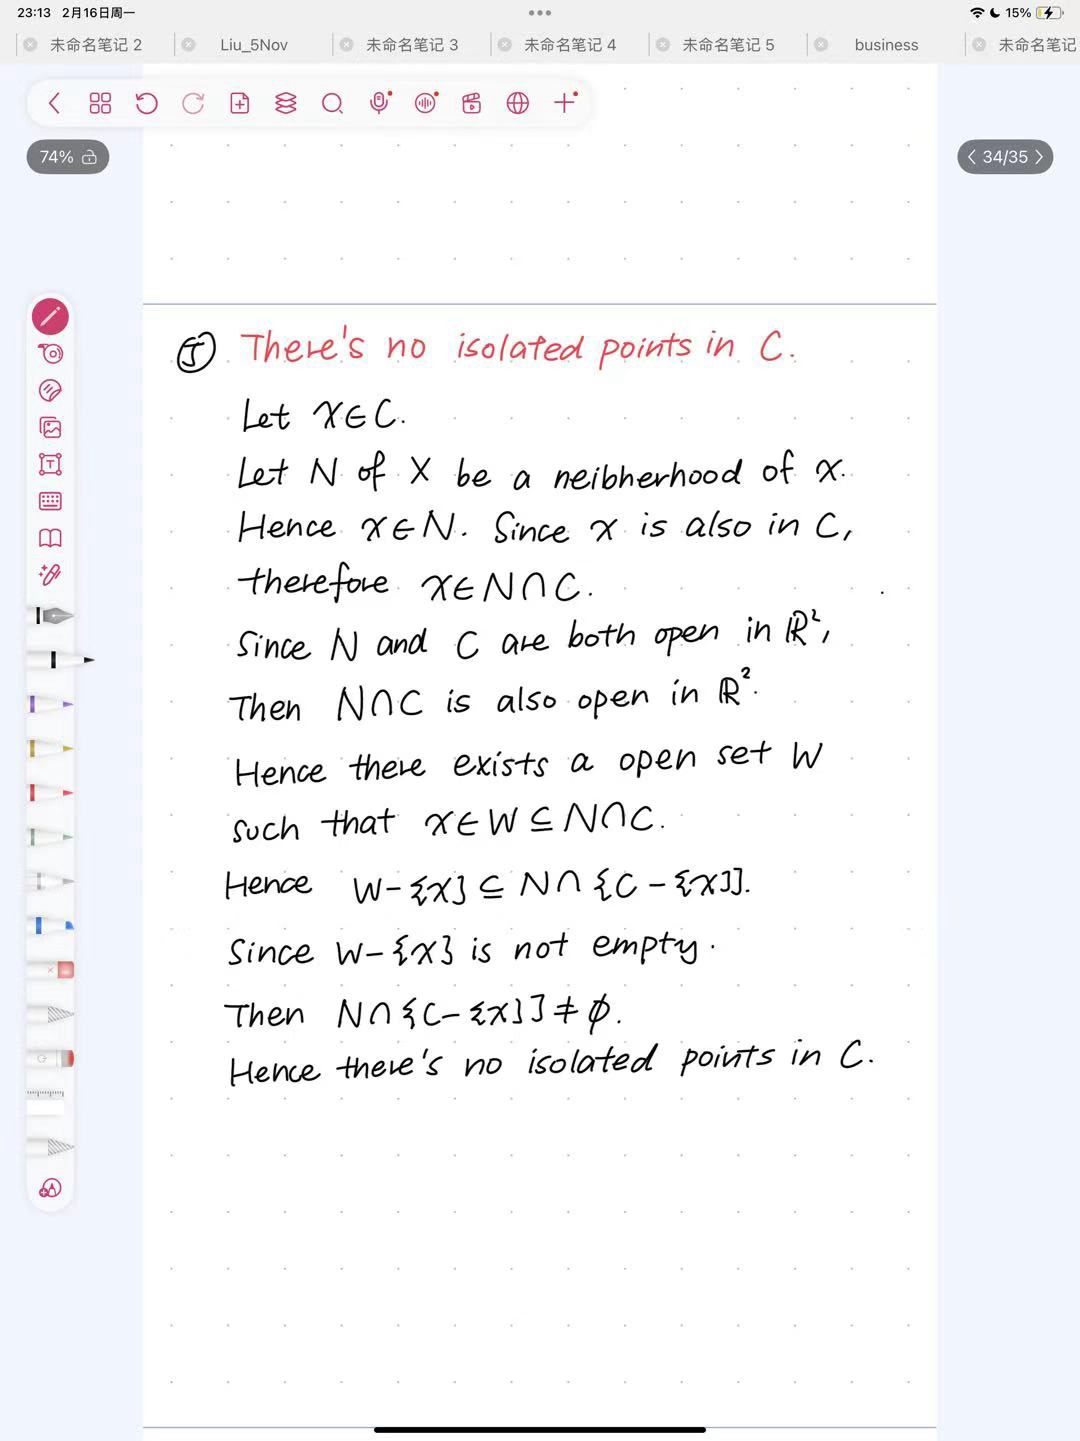 23:13 2月16日周一
15%
未命名笔记 2
Liu_5Nov
未命名笔记 3
未命名笔记 4
未命名笔记 5
business
未命名笔记
74%
34/35
⑤ There's no isolated points in C.
Let x∈C.
Let N of X be a neibherhood of x.
Hence x∈N. Since x is also in C,
therefore x∈N∩C.
Since N and C are both open in ℝ²,
Then N∩C is also open in ℝ².
Hence there exists a open set W
such that x∈W⊆N∩C.
Hence W-{x}⊆N∩{C-{x}}.
Since W-{x} is not empty.
Then N∩{C-{x}}≠φ.
Hence there's no isolated points in C.